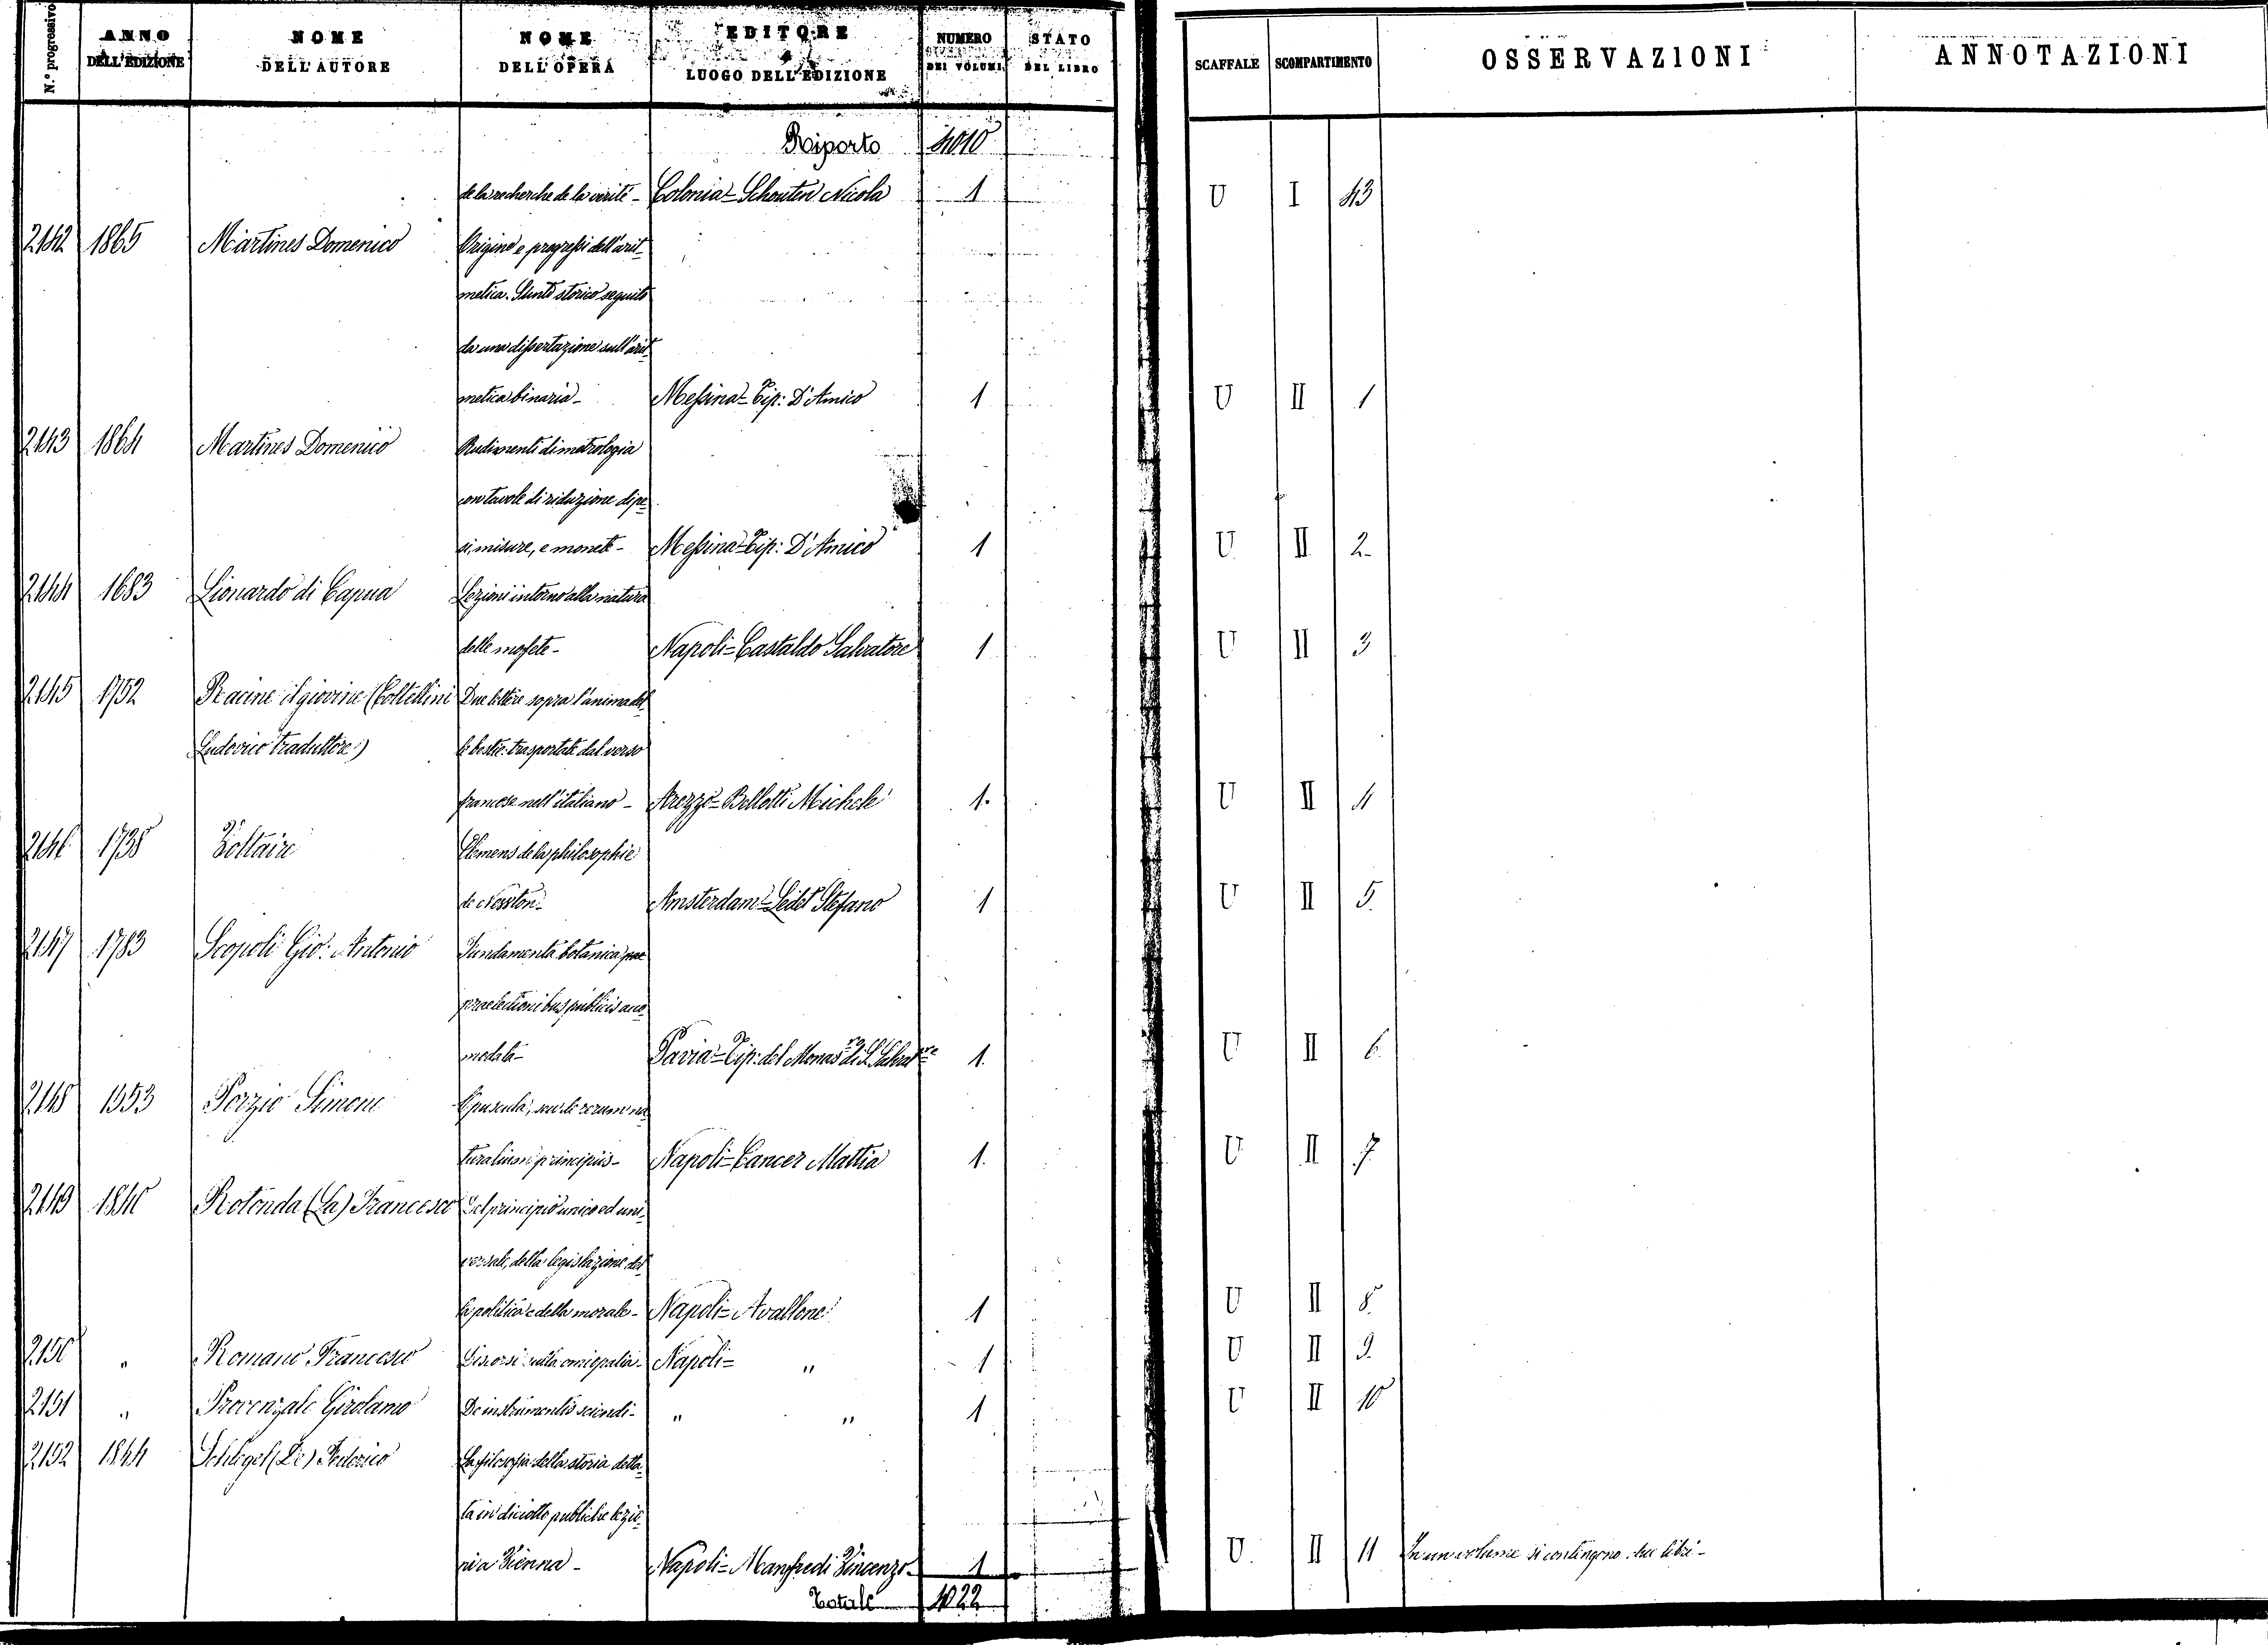 N.° progressivo | ANNO DELL'EDIZIONE | NOME DELL'AUTORE | NOME DELL'OPERA | EDITORE E LUOGO DELL'EDIZIONE | NUMERO DEI VOLUMI | STATO DEL LIBRO | SCAFFALE | SCOMPARTIMENTO | OSSERVAZIONI | ANNOTAZIONI
Riporto 4010
de la recherche de la verité - Colonia = Schouten Nicola 1 U I 43
2142 1865 Martines Domenico Origine e progressi dell'arit-
metica. Sunto storico seguito
da una dissertazione sull'arit-
metica binaria - Messina = Tip: D'Amico 1 U II 1
2143 1864 Martines Domenico Rudimenti di metrologia
con tavole di riduzione di pe-
si, misure, e monete - Messina = Tip: D'Amico 1 U II 2
2144 1683 Lionardo di Capua Lezioni intorno alla natura
delle mofete - Napoli = Castaldo Salvatore 1 U II 3
2145 1752 Racine il giovine (Coltellini Due lettere sopra l'anima del-
Ludovico traduttore) le bestie trasportate dal verso
francese nell'italiano - Arezzo = Bellotti Michele 1 U II 4
2146 1738 Voltaire Elemens de la philosophie
de Newton - Amsterdam = Ledet Stefano 1 U II 5
2147 1783 Scopoli Gio: Antonio Fundamenta botanica prae
praelectionibus publicis aco-
modata - Pavia = Tip: del Monas.ro di S. Salvat.re 1 U II 6
2148 1553 Porzio Simone Opuscula, seu de rerum na-
turalium principiis - Napoli = Cancer Mattia 1 U II 7
2149 1840 Rotonda (La) Francesco Del principio unico ed uni-
versale, della legislazione del-
la politica e della morale - Napoli = Avallone 1 U II 8
2150 " Romano Francesco Discorsi sulla omiopatia - Napoli = " 1 U II 9
2151 " Provenzale Girolamo De instrumentis sciendi - " " 1 U II 10
2152 1844 Schlegel (De) Federico La filosofia della storia detta-
ta in diciotto pubbliche lezio-
ni a Vienna - Napoli = Manfredi Vincenzo - 1 U II 11 In un volume si contengono due libri -
Totale 4022